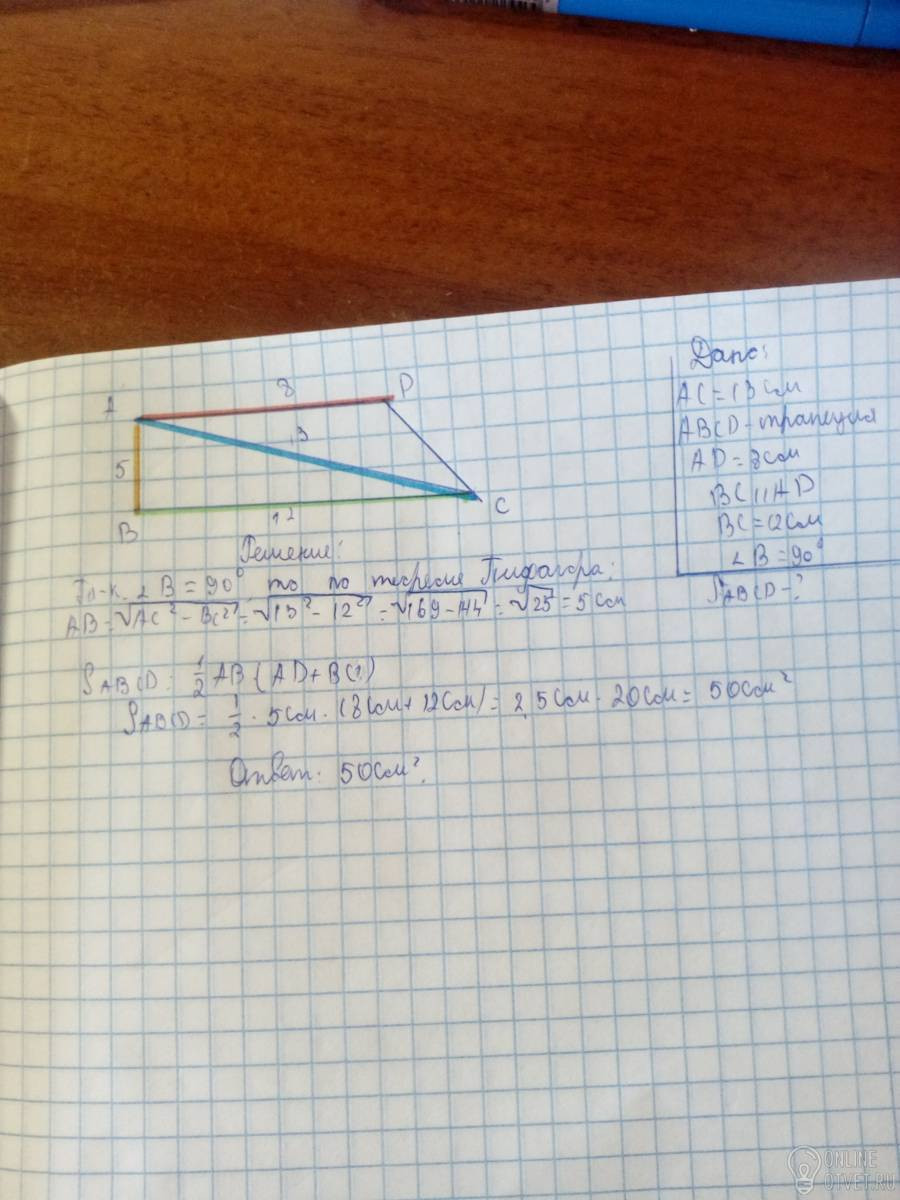 Дано:
AC = 13 см
ABCD - трапеция
AD = 8 см
BC || AD
BC = 12 см
∠B = 90°
S ABCD - ?
8
A
D
13
5
B
12
C
Решение:
Т.-к. ∠B = 90°, то по теореме Пифагора:
AB = √AC² - BC² = √13² - 12² = √169 - 144 = √25 = 5 см
S ABCD = 1/2 AB (AD + BC)
S ABCD = 1/2 · 5 см · (8 см + 12 см) = 2,5 см · 20 см = 50 см²
Ответ: 50 см².
ONLINE
OTVET.RU